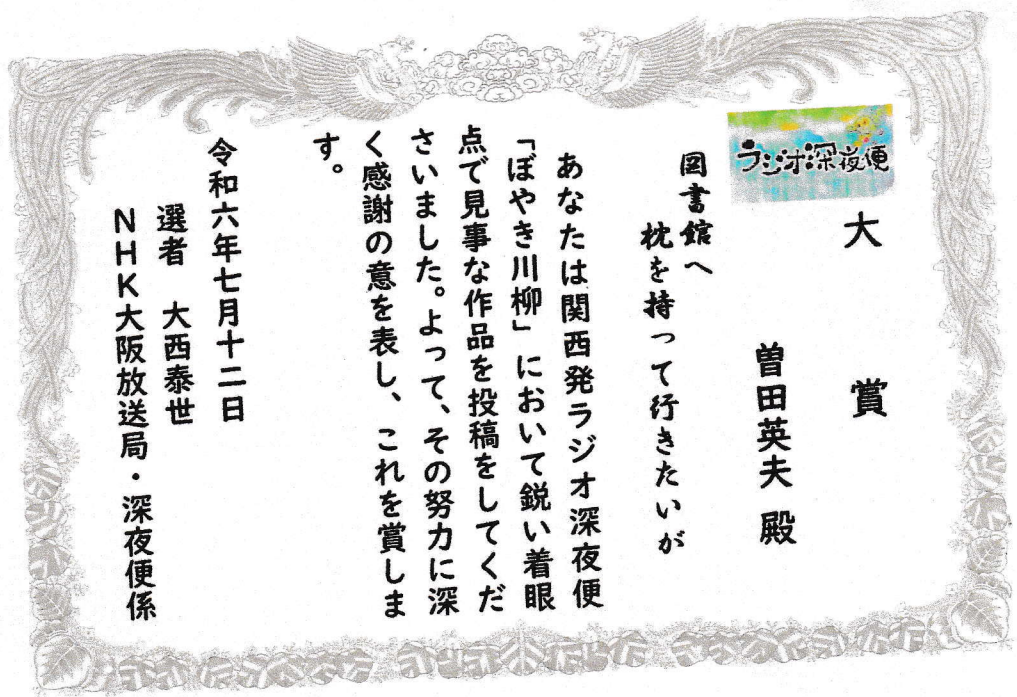 ラジオ深夜便
大賞
曽田英夫 殿
図書館へ
枕を持って行きたいが
あなたは関西発ラジオ深夜便
「ぼやき川柳」において鋭い着眼
点で見事な作品を投稿をしてくだ
さいました。よって、その努力に深
く感謝の意を表し、これを賞しま
す。
令和六年七月十二日
選者 大西泰世
NHK大阪放送局・深夜便係